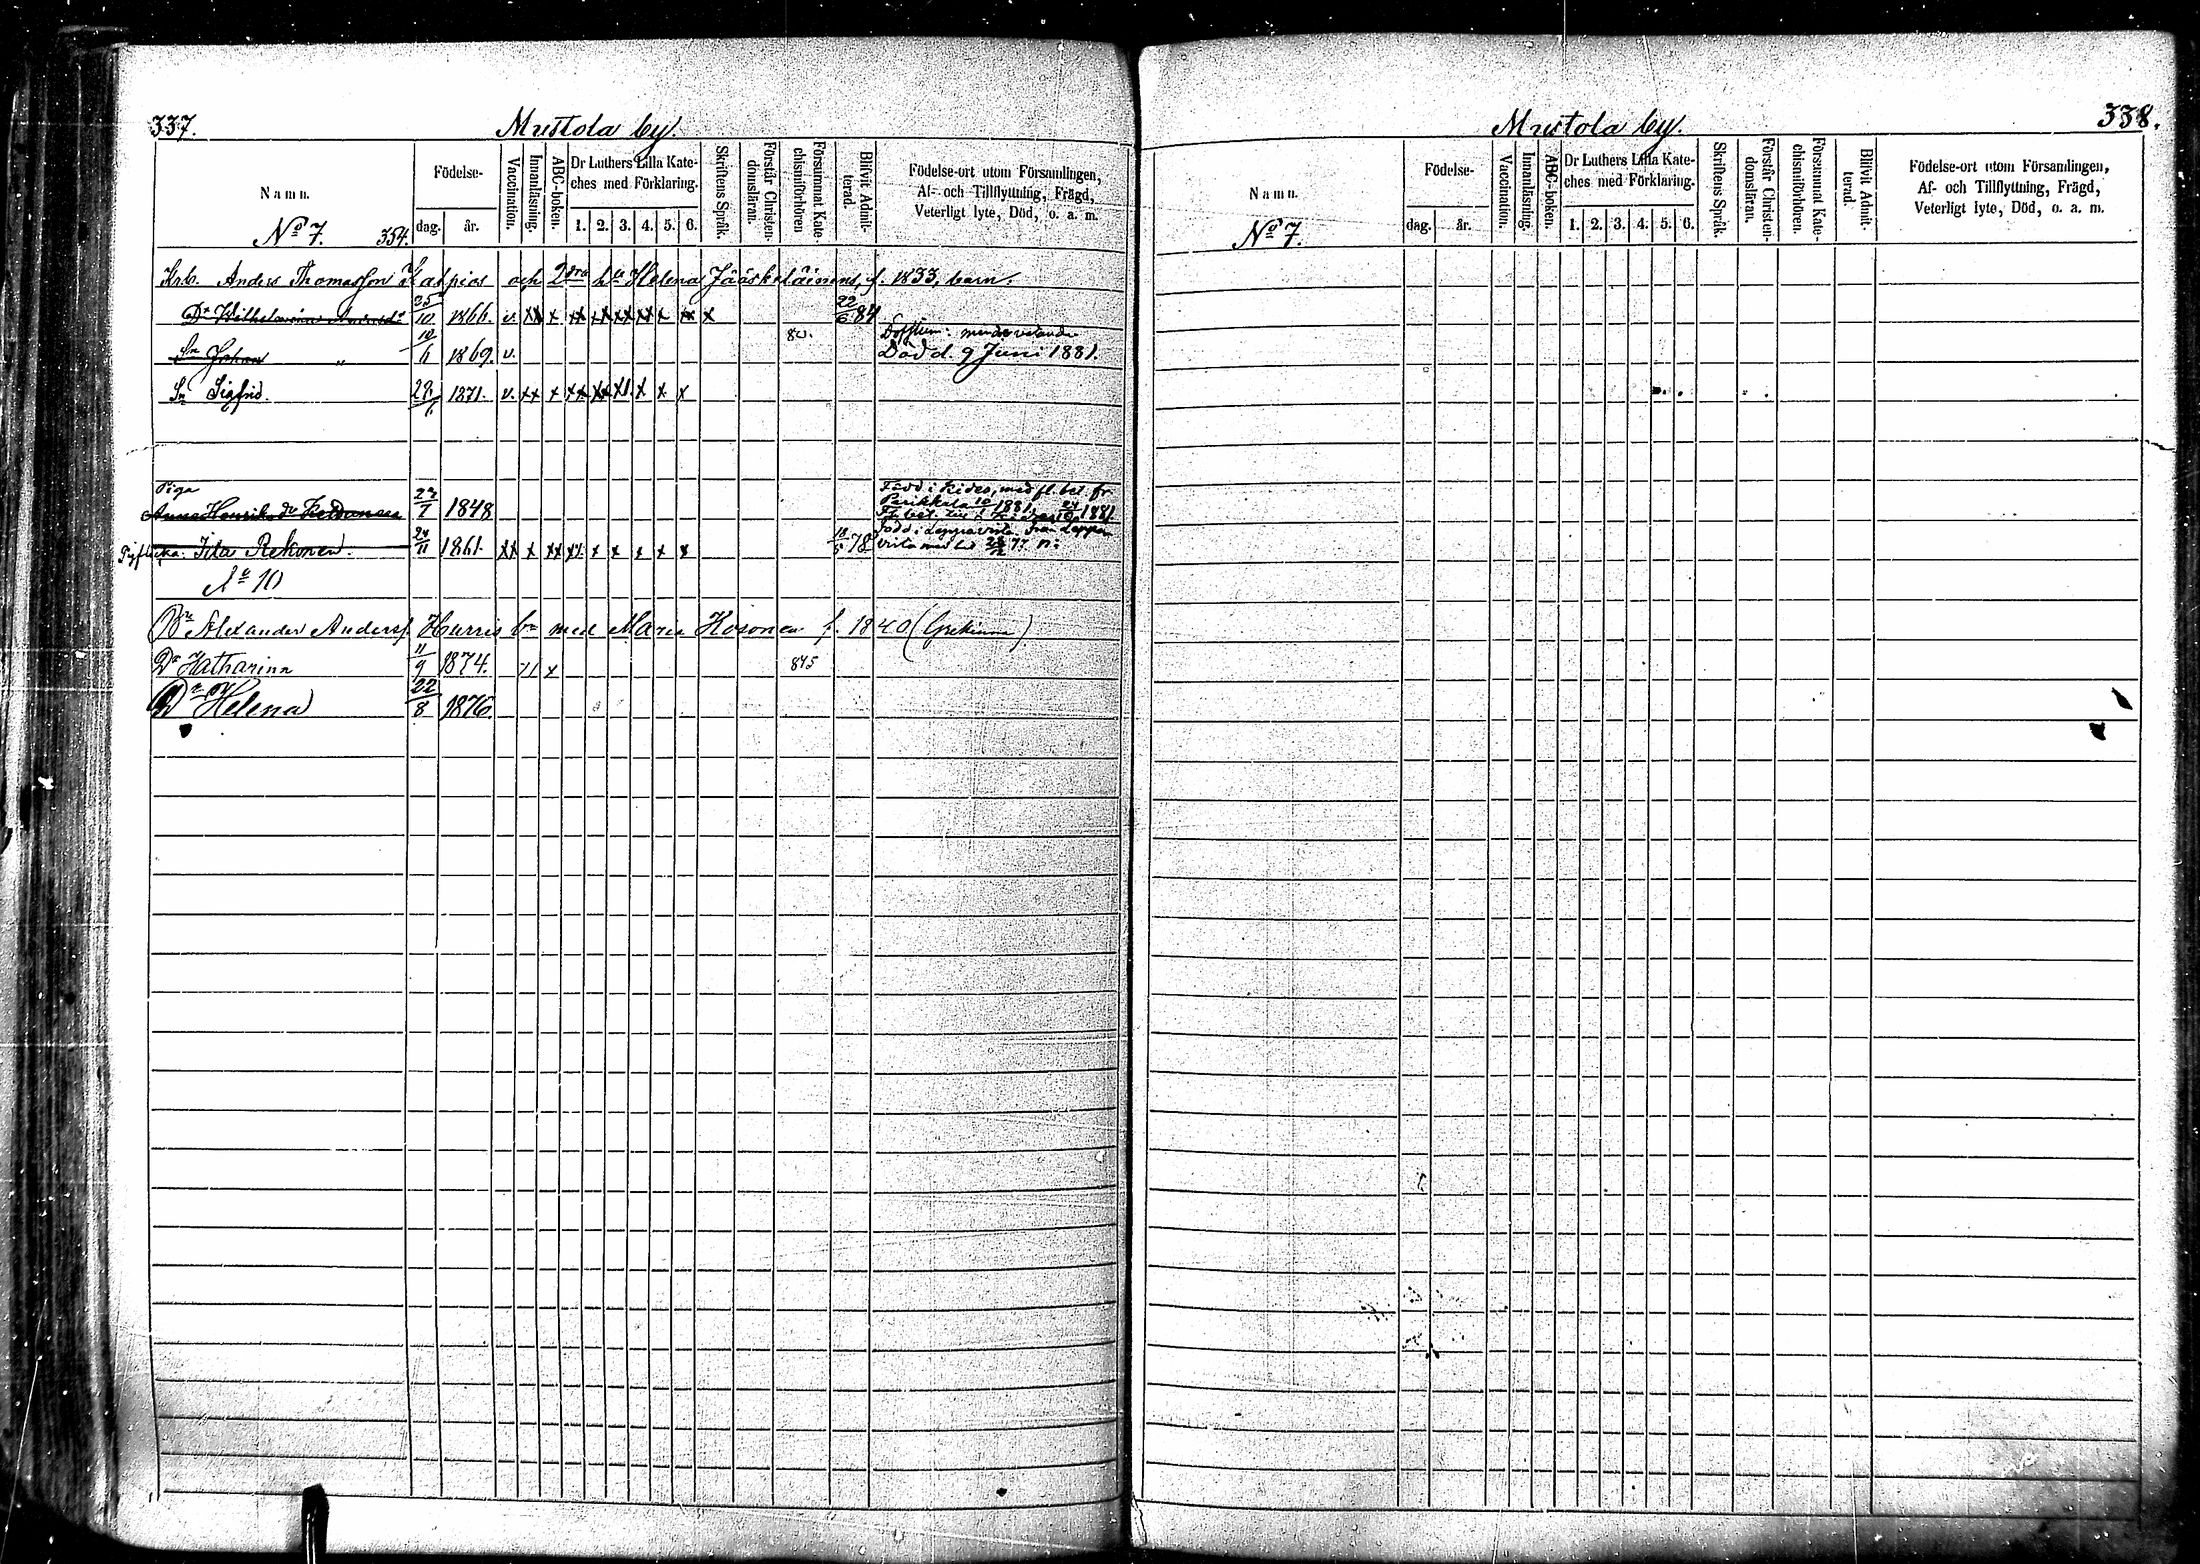 337.
Mustola by.
Namn.
Födelse-
dag. år.
Vaccination.
Innanläsning.
ABC-boken.
Dr Luthers Lilla Kate-
ches med Förklaring.
1. 2. 3. 4. 5. 6.
Skriftens Språk.
Förstår Christen-
domsläran.
Försummat Kate-
chismiförhören
Blifvit Admit-
terad.
Födelse-ort utom Församlingen,
Af- och Tillflyttning, Frägd,
Veterligt lyte, Död, o. a. m.
No 7. 354.
Anders Thomasson och 2dra hu Helena Jääskeläinens, f. 1833, barn.
Dr Wilhelmina 25/10 1866. v. xx x xx xx xx xx x xx x 22/6 84
80. Döfstum.
Sn Johan " 10/6 1869. v. Död d. 9 Juni 1881.
Sn Sigfrid. 28/6 1871. v. xx x xx xx x x x x
Piga
Anna Henriksdr 27/7 1848 Född i Kides, med fl. bet. fr
Parikkala 10/ 1881.
1881
Född i Leppävirta. Från Leppä
Iita Rekonen. 24/11 1861. xx x xx x x x x x 78 virta med bet 77
No 10
Alexander Anders. Hurris med Maria Kosonen f. 1840 (Grekinna)
Dr Katharina 11/9 1874. x 875
Dr Helena 22/8 1876.
338.
Mustola by.
Namn.
Födelse-
dag. år.
Vaccination.
Innanläsning.
ABC-boken.
Dr Luthers Lilla Kate-
ches med Förklaring.
1. 2. 3. 4. 5. 6.
Skriftens Språk.
Förstår Christen-
domsläran.
Försummat Kate-
chismiförhören.
Blifvit Admit-
terad.
Födelse-ort utom Församlingen,
Af- och Tillflyttning, Frägd,
Veterligt lyte, Död, o. a. m.
No 7.